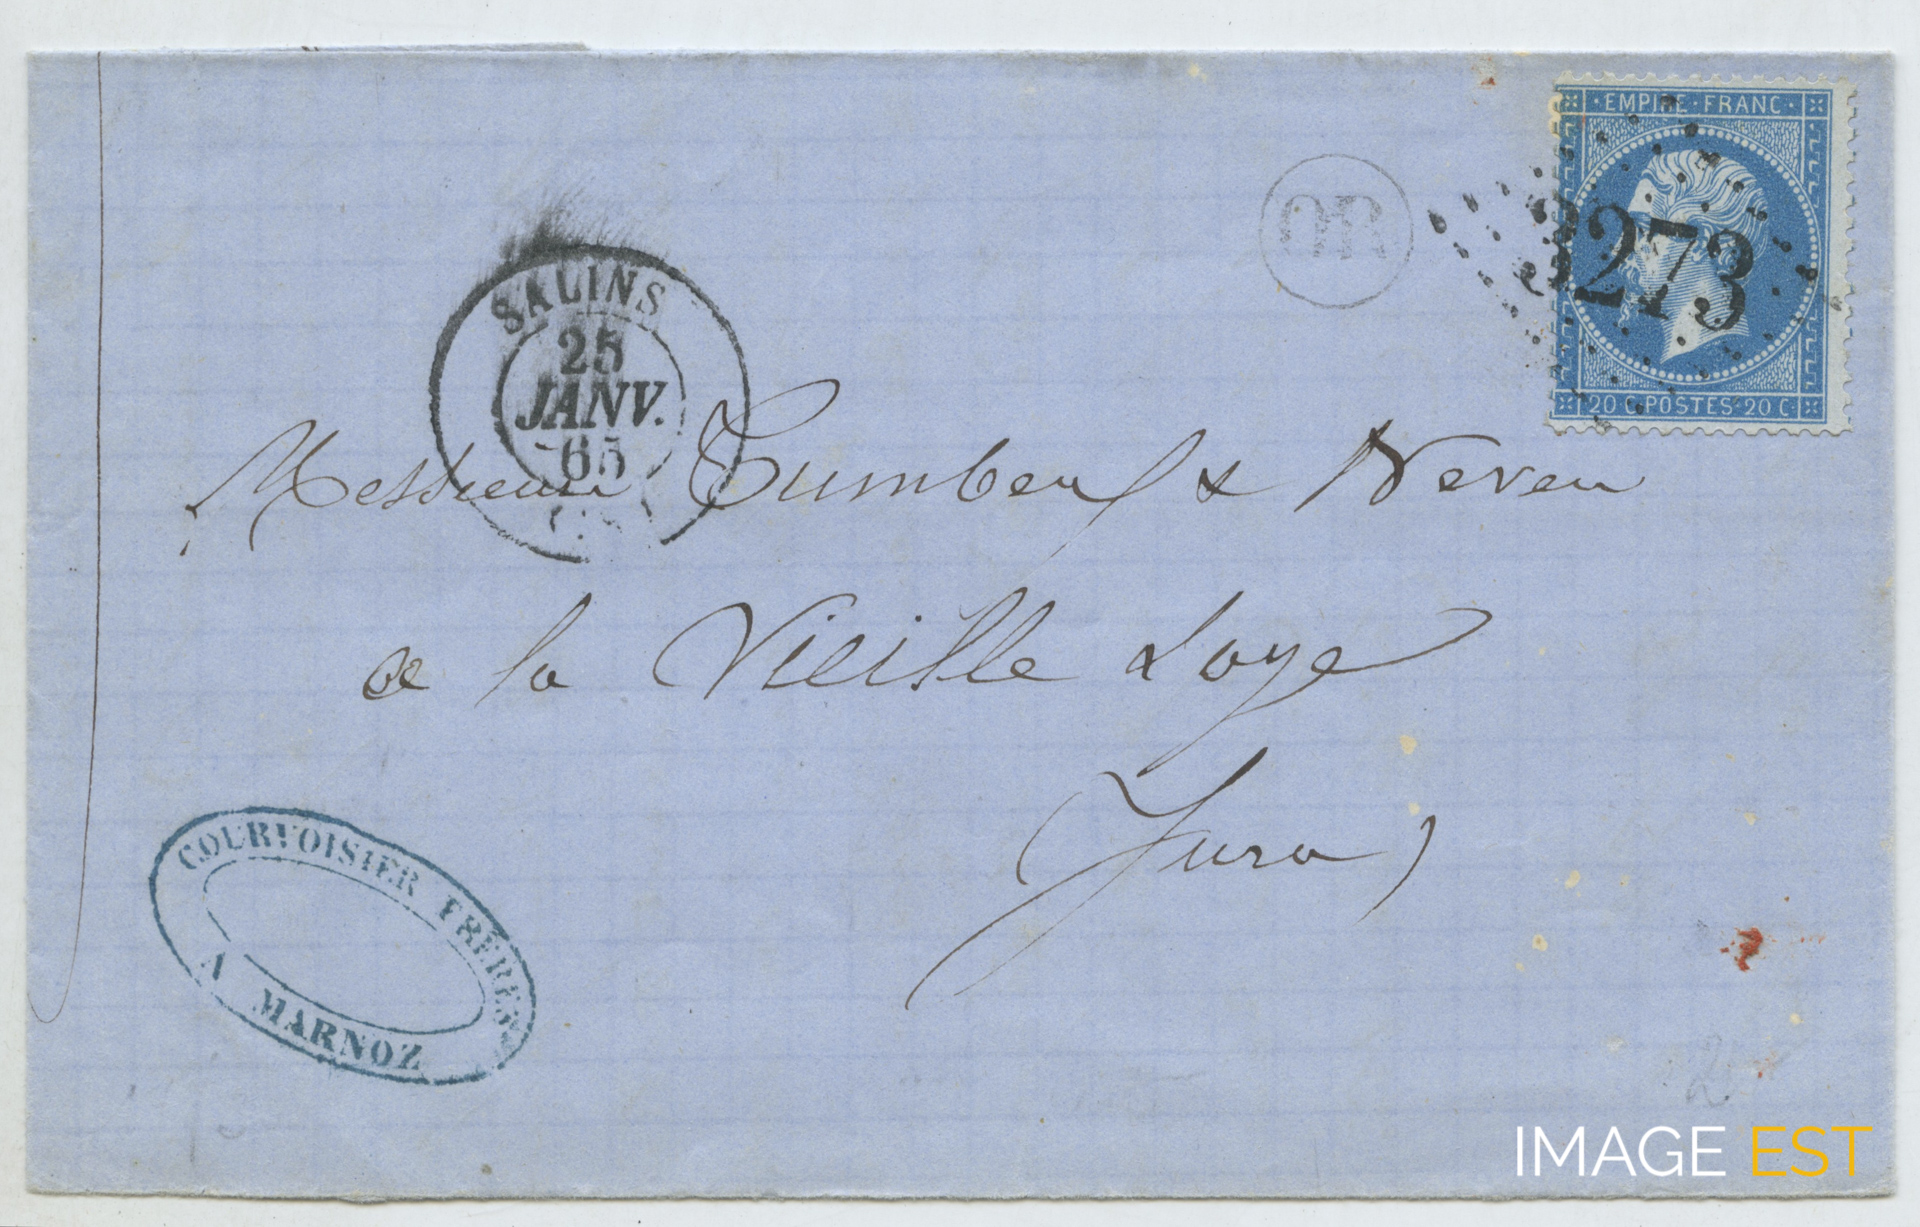 EMPIRE · FRANC
3273
20 C POSTES 20 C
OR
SALINS
25
JANV.
65
Messieurs Tumbeuf & Neveu
de la Vieille Loye
Jura
COURVOISIER FRÈRES
A MARNOZ
2
IMAGE EST